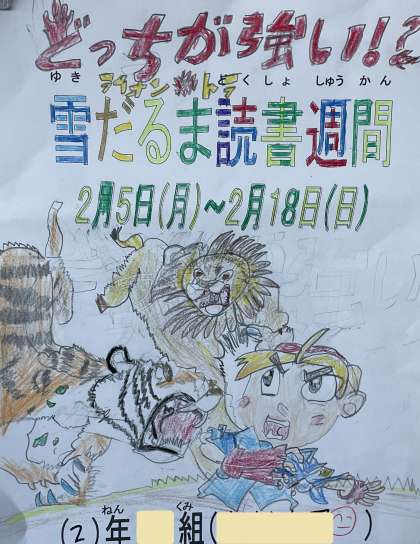 どっちが強い!?
ライオン トラ
ゆき どくしょ しゅうかん
雪だるま読書週間
2月5日(月)~2月18日(日)
ねん くみ
(2)年 組( )